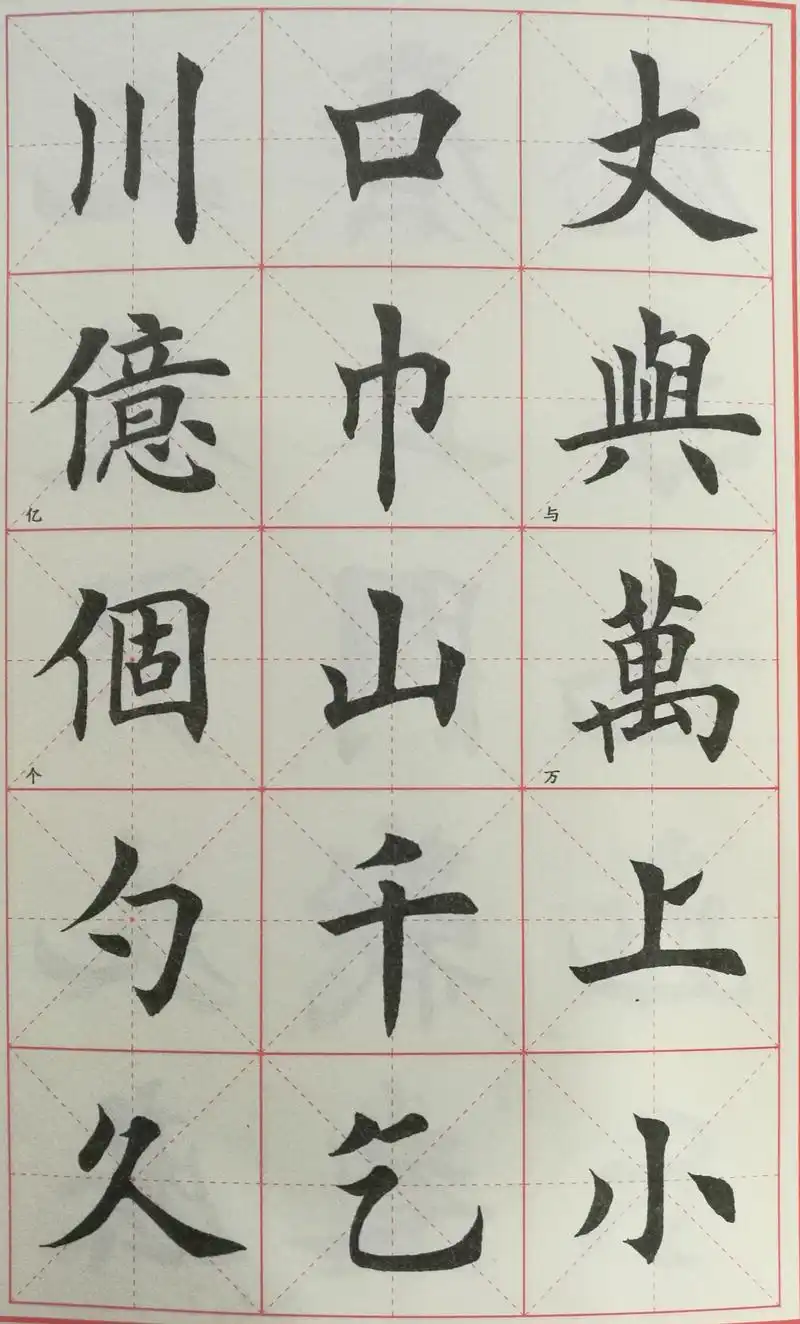 丈
與 与
萬 万
上
小
口
巾
山
千
乞
川
億 亿
個 个
勺
久